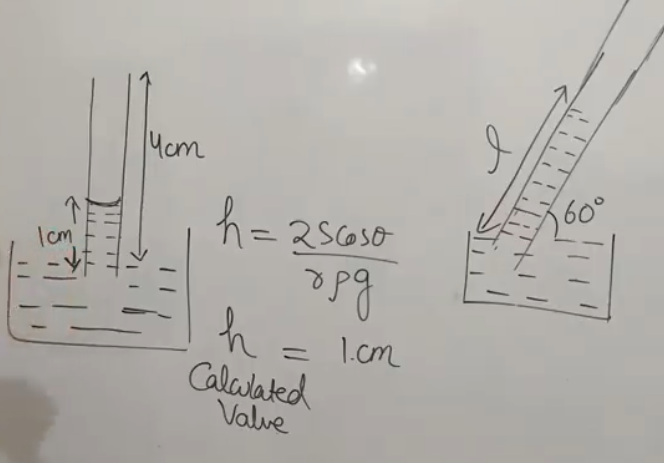 4cm
1cm
h = 2Scosθ / rρg
h = 1.cm
Calculated
Valve
l
60°